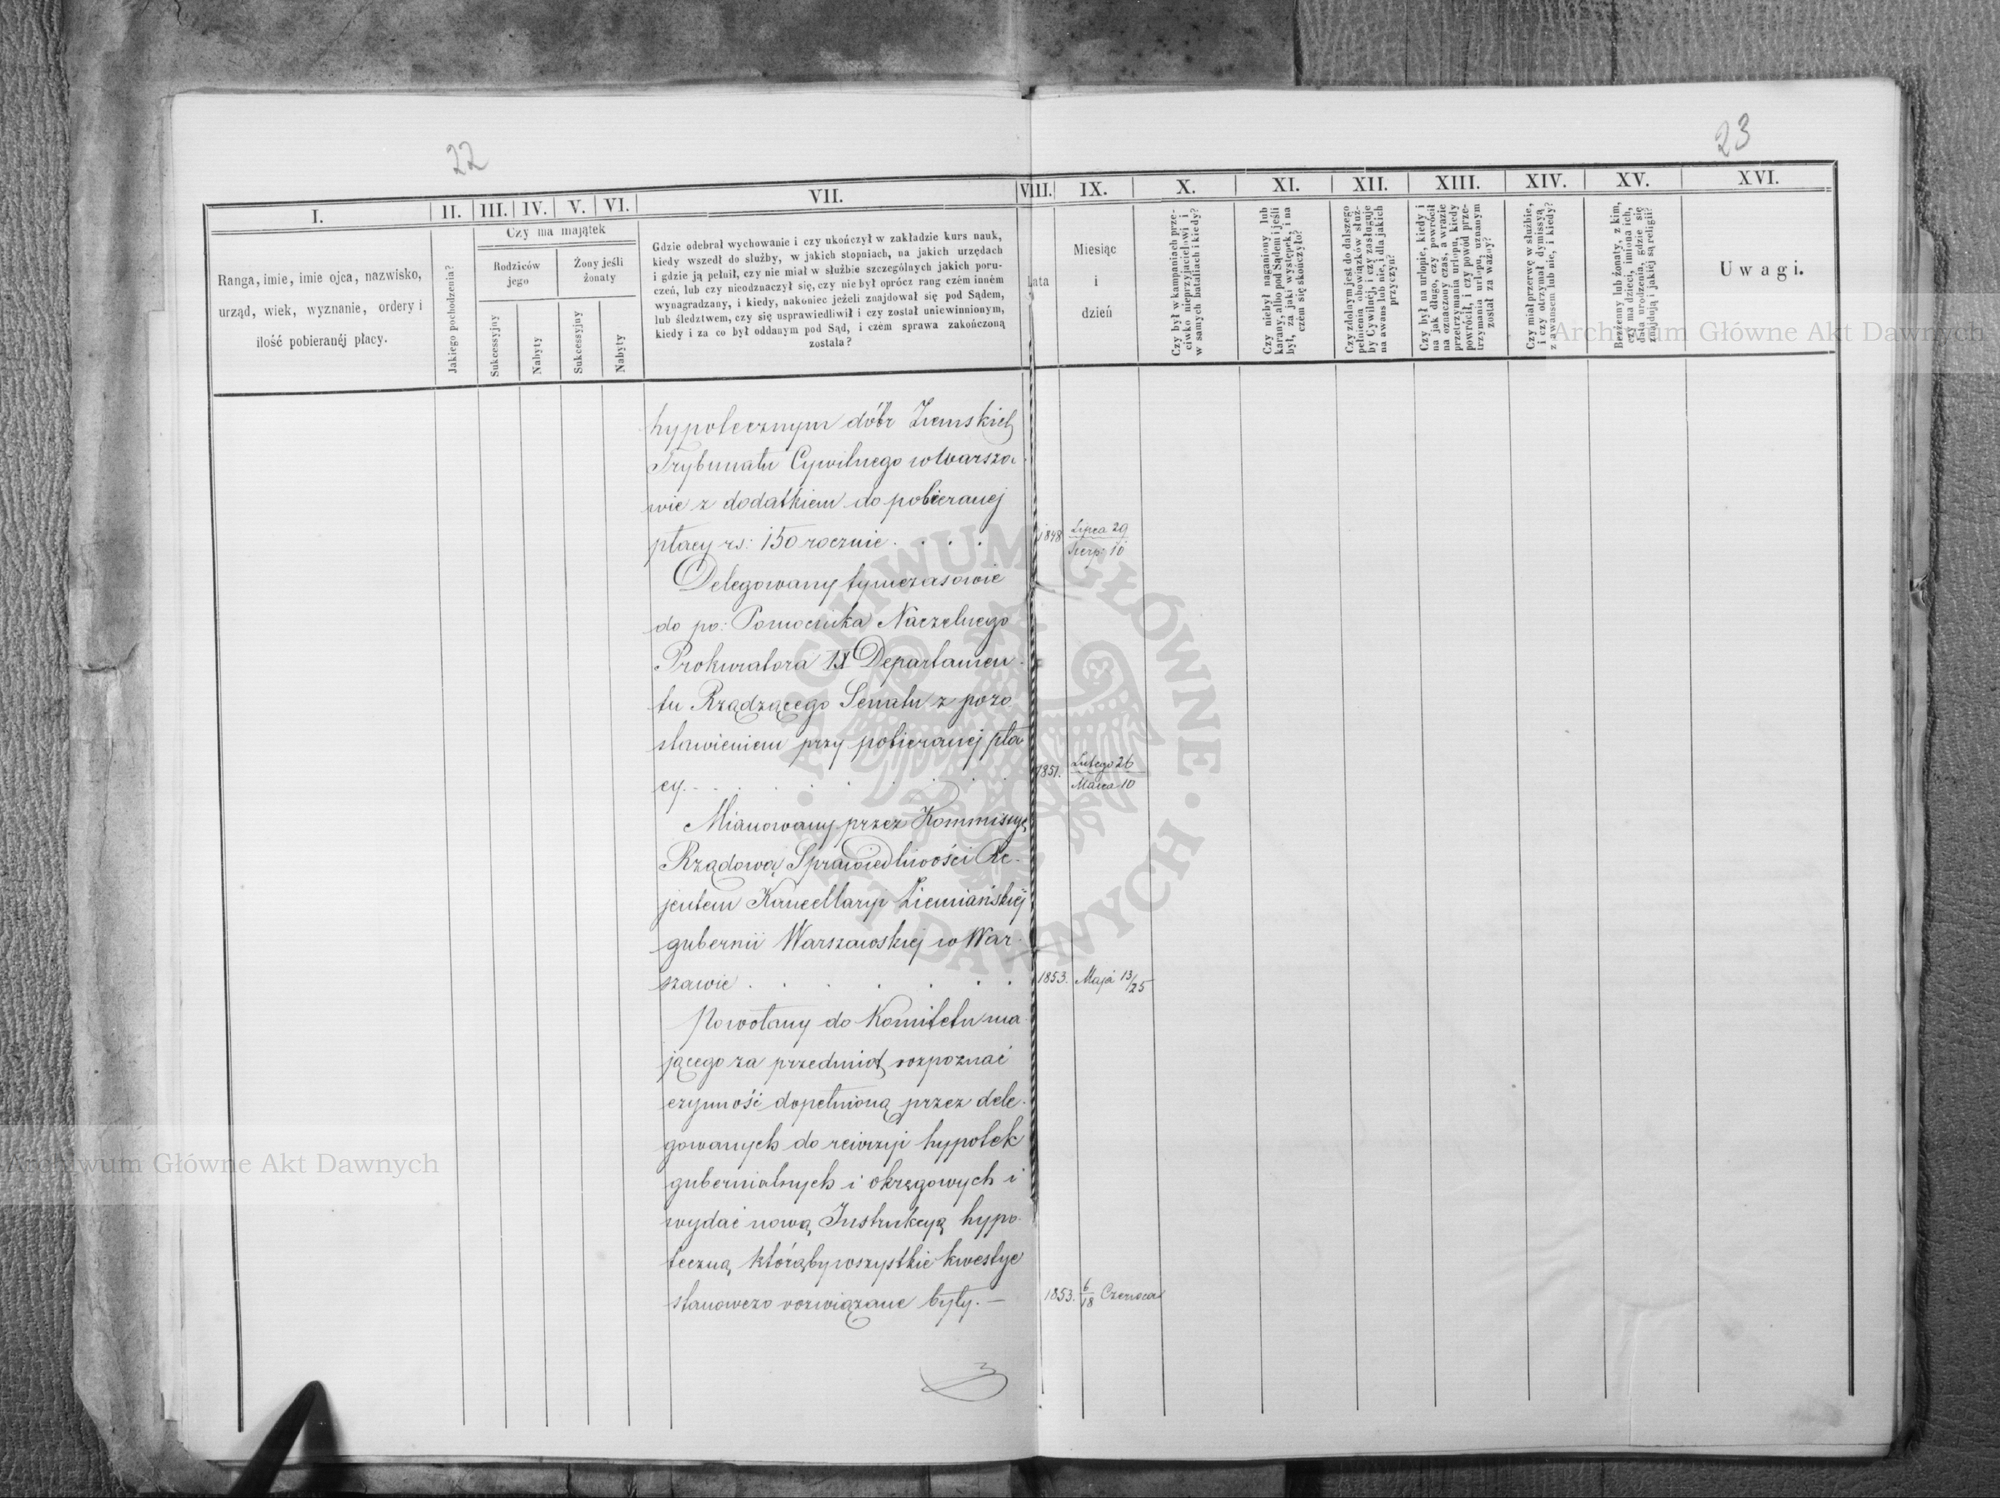 22
23
I.
II.
III.
IV.
V.
VI.
VII.
VIII.
IX.
X.
XI.
XII.
XIII.
XIV.
XV.
XVI.
Ranga, imie, imie ojca, nazwisko,
urząd, wiek, wyznanie, ordery i
ilość pobieranéj płacy.
Jakiego pochodzenia?
Czy ma majątek
Rodziców
jego
Żony jeśli
żonaty
Sukcessyjny
Nabyty
Sukcessyjny
Nabyty
Gdzie odebrał wychowanie i czy ukończył w zakładzie kurs nauk,
kiedy wszedł do służby, w jakich stopniach, na jakich urzędach
i gdzie ją pełnił, czy nie miał w służbie szczególnych jakich poru-
czeń, lub czy nieodznaczył się, czy nie był oprócz rang czém inném
wynagradzany, i kiedy, nakoniec jeżeli znajdował się pod Sądem,
lub śledztwem, czy się usprawiedliwił i czy został uniewinnionym,
kiedy i za co był oddanym pod Sąd, i czém sprawa zakończoną
została?
Lata
Miesiąc
i
dzień
Czy był w kampaniach prze-
ciwko nieprzyjacielowi i
w samych batalіach i kiedy?
Czy niebył naganiony lub
karany, albo pod Sądem i jeśli
był, za jaki występek, i na
czém się skończyło?
Czy zdolnym jest do dalszego
pełnienia obowiązków służ-
by Cywilnej, i czy zasługuje
na awans lub nie, i dla jakich
przyczyn?
Czy był na urlopie, kiedy i
na jak długo, czy powrócił
na oznaczony czas, a w razie
przetrzymania urlopu, kiedy
powrócił, i czy powód prze-
trzymania urlopu, uznanym
został za ważny?
Czy miał przerwę w służbie,
i czy otrzymał dymissyą
z awansem lub nie, i kiedy?
Bezżenny lub żonaty, z kim,
czy ma dzieci, imiona ich,
data urodzenia, gdzie się
znajdują i jakiéj są religii?
Uwagi.
hypotecznym dóbr Ziemskich
Trybunału Cywilnego w Warsza-
wie z dodatkiem do pobieranej
płacy rs: 150 rocznie . . . .
1848
Lipca 29
Sierp: 10
Delegowany tymczasowie
do po: Pomocnika Naczelnego
Prokuratora IX Departamen-
tu Rządzącego Senatu z pozo
stawieniem przy pobieranej pła
cy. . . . . . .
1851.
Lutego 26
Marca 10
Mianowany przez Kommissyę
Rządową Sprawiedliwości Re-
jentem Kancellaryi Ziemiańskiej
gubernii Warszawskiej w War-
szawie . . . . . .
1853. Maja 13/25
Powołany do Komitetu ma-
jącego za przedmiot rozpoznać
czynność dopełnioną przez dele-
gowanych do rewizyi hypotek
gubernialnych i okręgowych i
wydać nową Instrukcyą hypo-
teczną którąby wszystkie kwestye
stanowczo rozwiązane były. —
1853. 6/18 Czerwca
Archiwum Główne Akt Dawnych
Archiwum Główne Akt Dawnych
ARCHIWUM GŁÓWNE AKT DAWNYCH